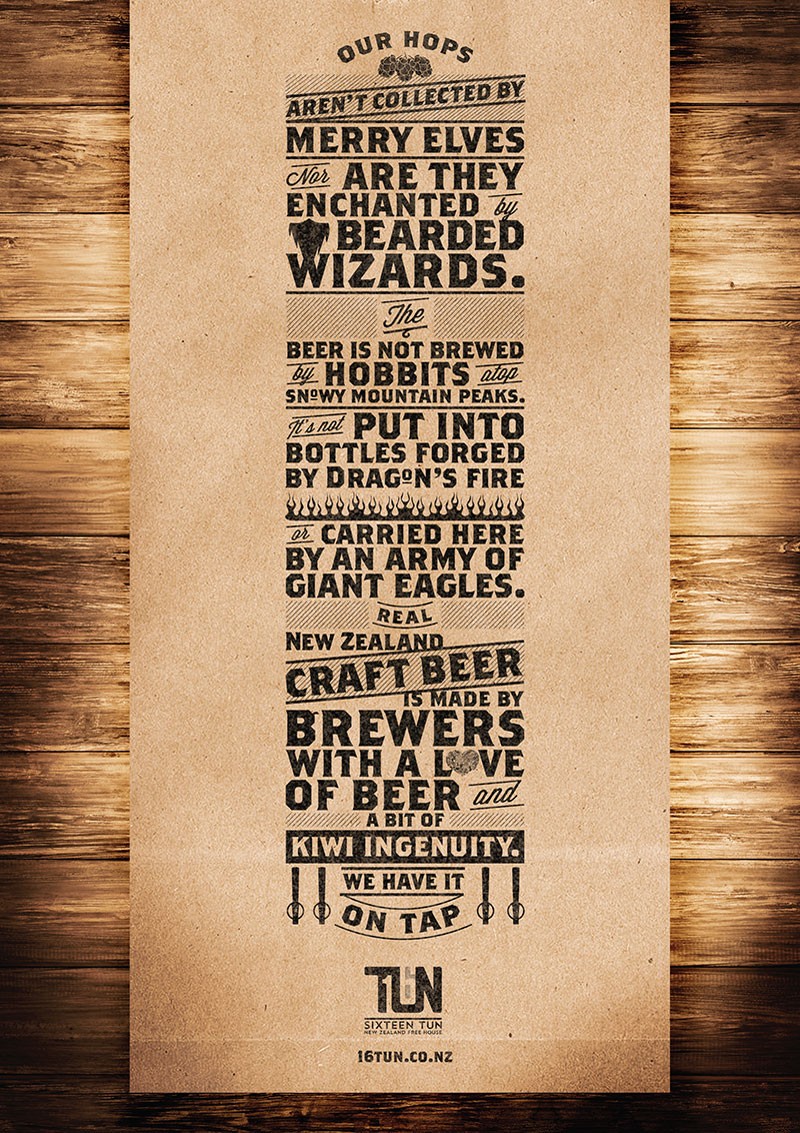 OUR HOPS
AREN'T COLLECTED BY
MERRY ELVES
Nor ARE THEY
ENCHANTED by
BEARDED
WIZARDS.
The
BEER IS NOT BREWED
by HOBBITS atop
SNOWY MOUNTAIN PEAKS.
It's not PUT INTO
BOTTLES FORGED
BY DRAGON'S FIRE
or CARRIED HERE
BY AN ARMY OF
GIANT EAGLES.
REAL
NEW ZEALAND
CRAFT BEER
IS MADE BY
BREWERS
WITH A LOVE
OF BEER and
A BIT OF
KIWI INGENUITY.
WE HAVE IT
ON TAP
T16N
SIXTEEN TUN
NEW ZEALAND FREE HOUSE
16TUN.CO.NZ